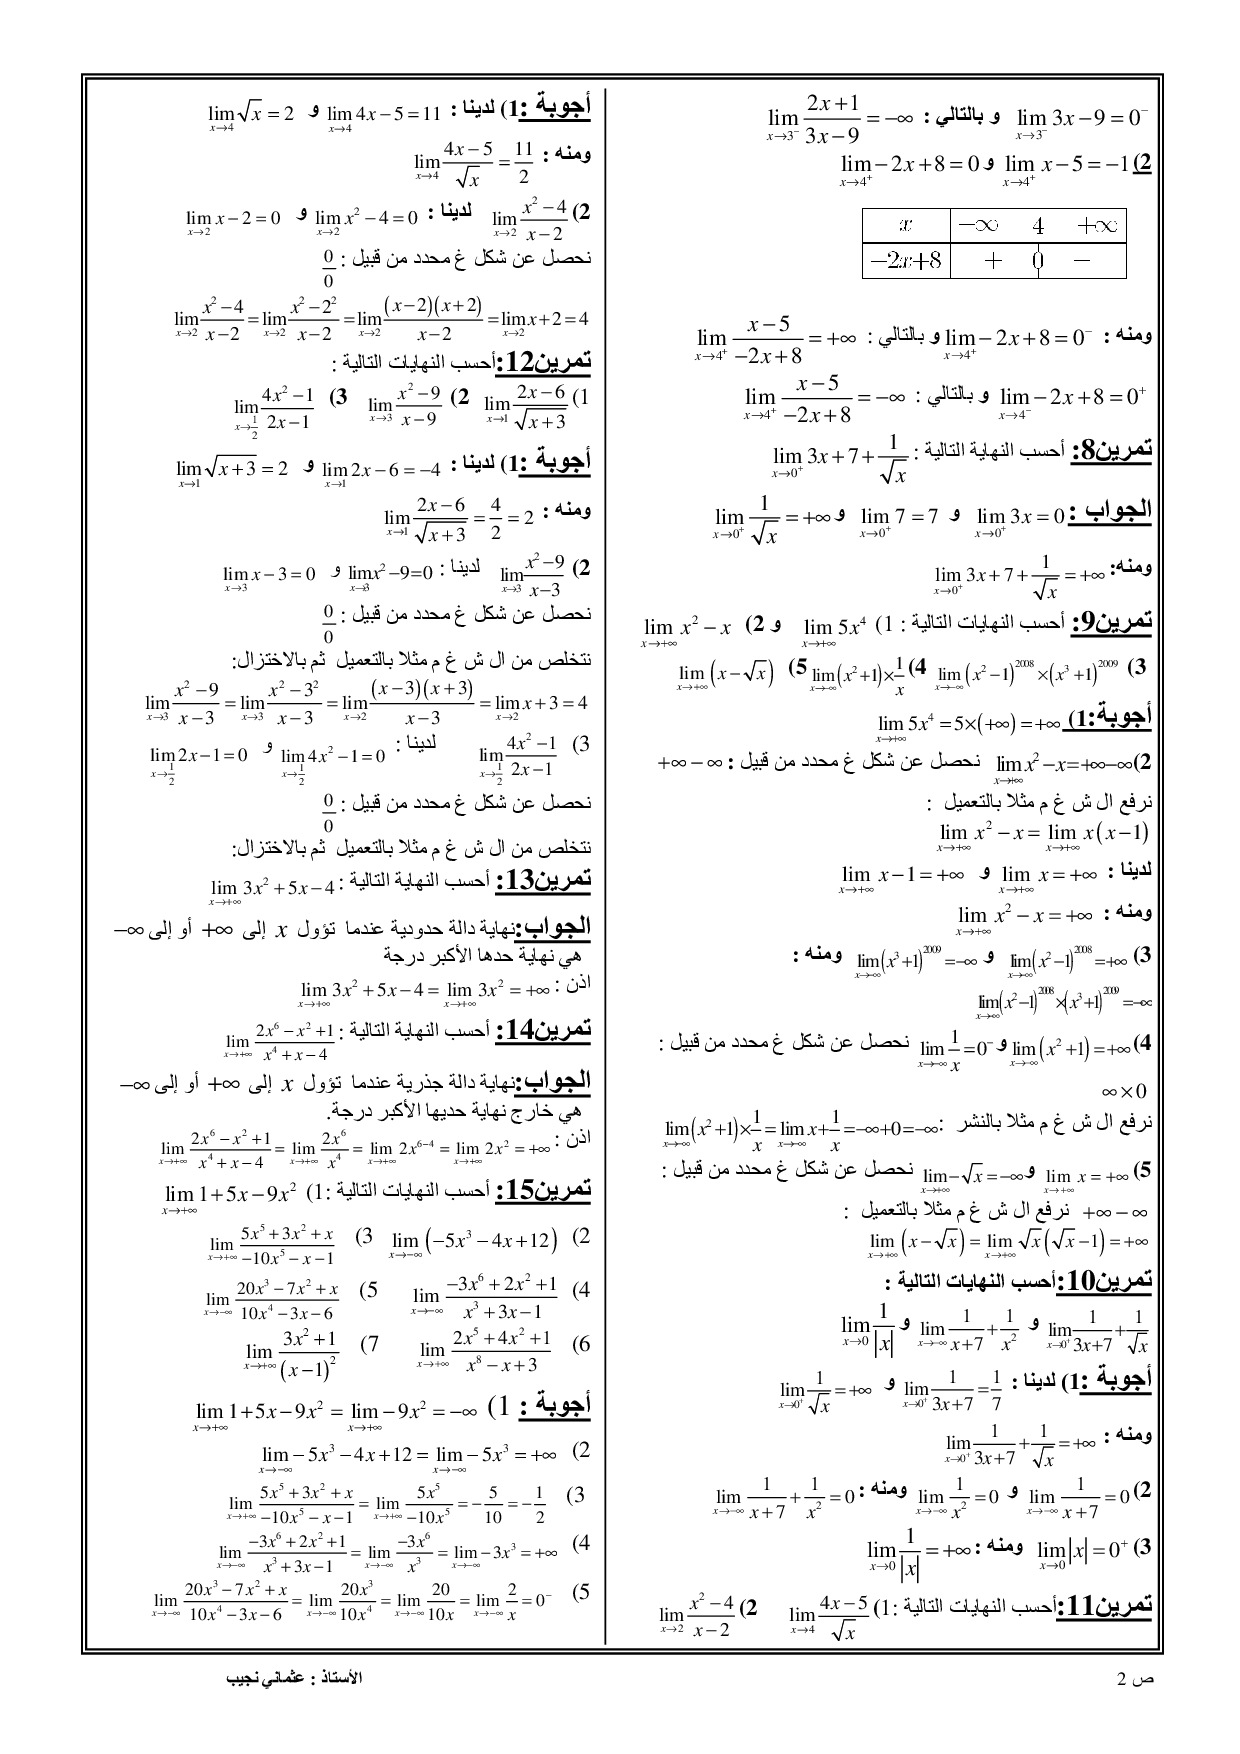 lim_{x→3⁻} 3x−9=0⁻ و بالتالي : lim_{x→3⁻} (2x+1)/(3x−9) = −∞
2) lim_{x→4⁺} x−5=−1 و lim_{x→4⁺} −2x+8=0
x −∞ 4 +∞
−2x+8 + 0 −
ومنه : lim_{x→4⁺} −2x+8=0⁻ و بالتالي : lim_{x→4⁺} (x−5)/(−2x+8) = +∞
lim_{x→4⁻} −2x+8=0⁺ و بالتالي : lim_{x→4⁺} (x−5)/(−2x+8) = −∞
تمرين8: أحسب النهاية التالية : lim_{x→0⁺} 3x+7+1/√x
الجواب : lim_{x→0⁺} 3x=0 و lim_{x→0⁺} 7=7 و lim_{x→0⁺} 1/√x=+∞
ومنه: lim_{x→0⁺} 3x+7+1/√x=+∞
تمرين9: أحسب النهايات التالية : 1) lim_{x→+∞} 5x⁴ و 2) lim_{x→+∞} x²−x
3) lim_{x→−∞} (x²−1)²⁰⁰⁸×(x³+1)²⁰⁰⁹ 4) lim_{x→−∞} (x²+1)×1/x 5) lim_{x→+∞} (x−√x)
أجوبة:1) lim_{x→+∞} 5x⁴=5×(+∞)=+∞
2) lim_{x→+∞} x²−x=+∞−∞ نحصل عن شكل غ محدد من قبيل : +∞−∞
نرفع ال ش غ م مثلا بالتعميل :
lim_{x→+∞} x²−x = lim_{x→+∞} x(x−1)
لدينا : lim_{x→+∞} x=+∞ و lim_{x→+∞} x−1=+∞
ومنه : lim_{x→+∞} x²−x=+∞
3) lim_{x→−∞} (x²−1)²⁰⁰⁸=+∞ و lim_{x→−∞} (x³+1)²⁰⁰⁹=−∞ ومنه :
lim_{x→−∞} (x²−1)²⁰⁰⁸×(x³+1)²⁰⁰⁹=−∞
4) lim_{x→−∞} (x²+1)=+∞ و lim_{x→−∞} 1/x=0⁻ نحصل عن شكل غ محدد من قبيل :
∞×0
نرفع ال ش غ م مثلا بالنشر : lim_{x→−∞} (x²+1)×1/x = lim_{x→−∞} x+1/x=−∞+0=−∞
5) lim_{x→+∞} x=+∞ و lim_{x→+∞} −√x=−∞ نحصل عن شكل غ محدد من قبيل :
+∞−∞ نرفع ال ش غ م مثلا بالتعميل :
lim_{x→+∞} (x−√x) = lim_{x→+∞} √x(√x−1)=+∞
تمرين10:أحسب النهايات التالية :
lim_{x→0⁺} 1/(3x+7)+1/√x و lim_{x→−∞} 1/(x+7)+1/x² و lim_{x→0} 1/|x|
أجوبة :1) لدينا : lim_{x→0⁺} 1/(3x+7)=1/7 و lim_{x→0⁺} 1/√x=+∞
ومنه : lim_{x→0⁺} 1/(3x+7)+1/√x=+∞
2) lim_{x→−∞} 1/(x+7)=0 و lim_{x→−∞} 1/x²=0 ومنه : lim_{x→−∞} 1/(x+7)+1/x²=0
3) lim_{x→0} |x|=0⁺ ومنه : lim_{x→0} 1/|x|=+∞
تمرين11:أحسب النهايات التالية :1) lim_{x→4} (4x−5)/√x 2) lim_{x→2} (x²−4)/(x−2)
أجوبة :1) لدينا : lim_{x→4} 4x−5=11 و lim_{x→4} √x=2
ومنه : lim_{x→4} (4x−5)/√x=11/2
2) lim_{x→2} (x²−4)/(x−2) لدينا : lim_{x→2} x²−4=0 و lim_{x→2} x−2=0
نحصل عن شكل غ محدد من قبيل : 0/0
lim_{x→2} (x²−4)/(x−2)=lim_{x→2} (x²−2²)/(x−2)=lim_{x→2} (x−2)(x+2)/(x−2)=lim_{x→2} x+2=4
تمرين12:أحسب النهايات التالية :
1) lim_{x→1} (2x−6)/√(x+3) 2) lim_{x→3} (x²−9)/(x−9) 3) lim_{x→1/2} (4x²−1)/(2x−1)
أجوبة :1) لدينا : lim_{x→1} 2x−6=−4 و lim_{x→1} √(x+3)=2
ومنه : lim_{x→1} (2x−6)/√(x+3)=4/2=2
2) lim_{x→3} (x²−9)/(x−3) لدينا : lim_{x→3} x²−9=0 و lim_{x→3} x−3=0
نحصل عن شكل غ محدد من قبيل : 0/0
نتخلص من ال ش غ م مثلا بالتعميل ثم بالاختزال:
lim_{x→3} (x²−9)/(x−3)=lim_{x→3} (x²−3²)/(x−3)=lim_{x→2} (x−3)(x+3)/(x−3)=lim_{x→2} x+3=4
3) lim_{x→1/2} (4x²−1)/(2x−1) لدينا : lim_{x→1/2} 4x²−1=0 و lim_{x→1/2} 2x−1=0
نحصل عن شكل غ محدد من قبيل : 0/0
نتخلص من ال ش غ م مثلا بالتعميل ثم بالاختزال:
تمرين13: أحسب النهاية التالية : lim_{x→+∞} 3x²+5x−4
الجواب:نهاية دالة حدودية عندما تؤول x إلى +∞ أو إلى −∞
هي نهاية حدها الأكبر درجة
اذن : lim_{x→+∞} 3x²+5x−4 = lim_{x→+∞} 3x²=+∞
تمرين14: أحسب النهاية التالية : lim_{x→+∞} (2x⁶−x²+1)/(x⁴+x−4)
الجواب:نهاية دالة جذرية عندما تؤول x إلى +∞ أو إلى −∞
هي خارج نهاية حديها الأكبر درجة.
اذن : lim_{x→+∞} (2x⁶−x²+1)/(x⁴+x−4) = lim_{x→+∞} 2x⁶/x⁴ = lim_{x→+∞} 2x⁶⁻⁴ = lim_{x→+∞} 2x²=+∞
تمرين15: أحسب النهايات التالية :1) lim_{x→+∞} 1+5x−9x²
2) lim_{x→−∞} (−5x³−4x+12) 3) lim_{x→+∞} (5x⁵+3x²+x)/(−10x⁵−x−1)
4) lim_{x→−∞} (−3x⁶+2x²+1)/(x³+3x−1) 5) lim_{x→−∞} (20x³−7x²+x)/(10x⁴−3x−6)
6) lim_{x→+∞} (2x⁵+4x²+1)/(x⁸−x+3) 7) lim_{x→+∞} (3x²+1)/(x−1)²
أجوبة : 1) lim_{x→+∞} 1+5x−9x² = lim_{x→+∞} −9x²=−∞
2) lim_{x→−∞} −5x³−4x+12 = lim_{x→−∞} −5x³=+∞
3) lim_{x→+∞} (5x⁵+3x²+x)/(−10x⁵−x−1) = lim_{x→+∞} 5x⁵/−10x⁵ = −5/10 = −1/2
4) lim_{x→−∞} (−3x⁶+2x²+1)/(x³+3x−1) = lim_{x→−∞} −3x⁶/x³ = lim_{x→−∞} −3x³=+∞
5) lim_{x→−∞} (20x³−7x²+x)/(10x⁴−3x−6) = lim_{x→−∞} 20x³/10x⁴ = lim_{x→−∞} 20/10x = lim_{x→−∞} 2/x=0⁻
ص 2
الأستاذ : عثماني نجيب